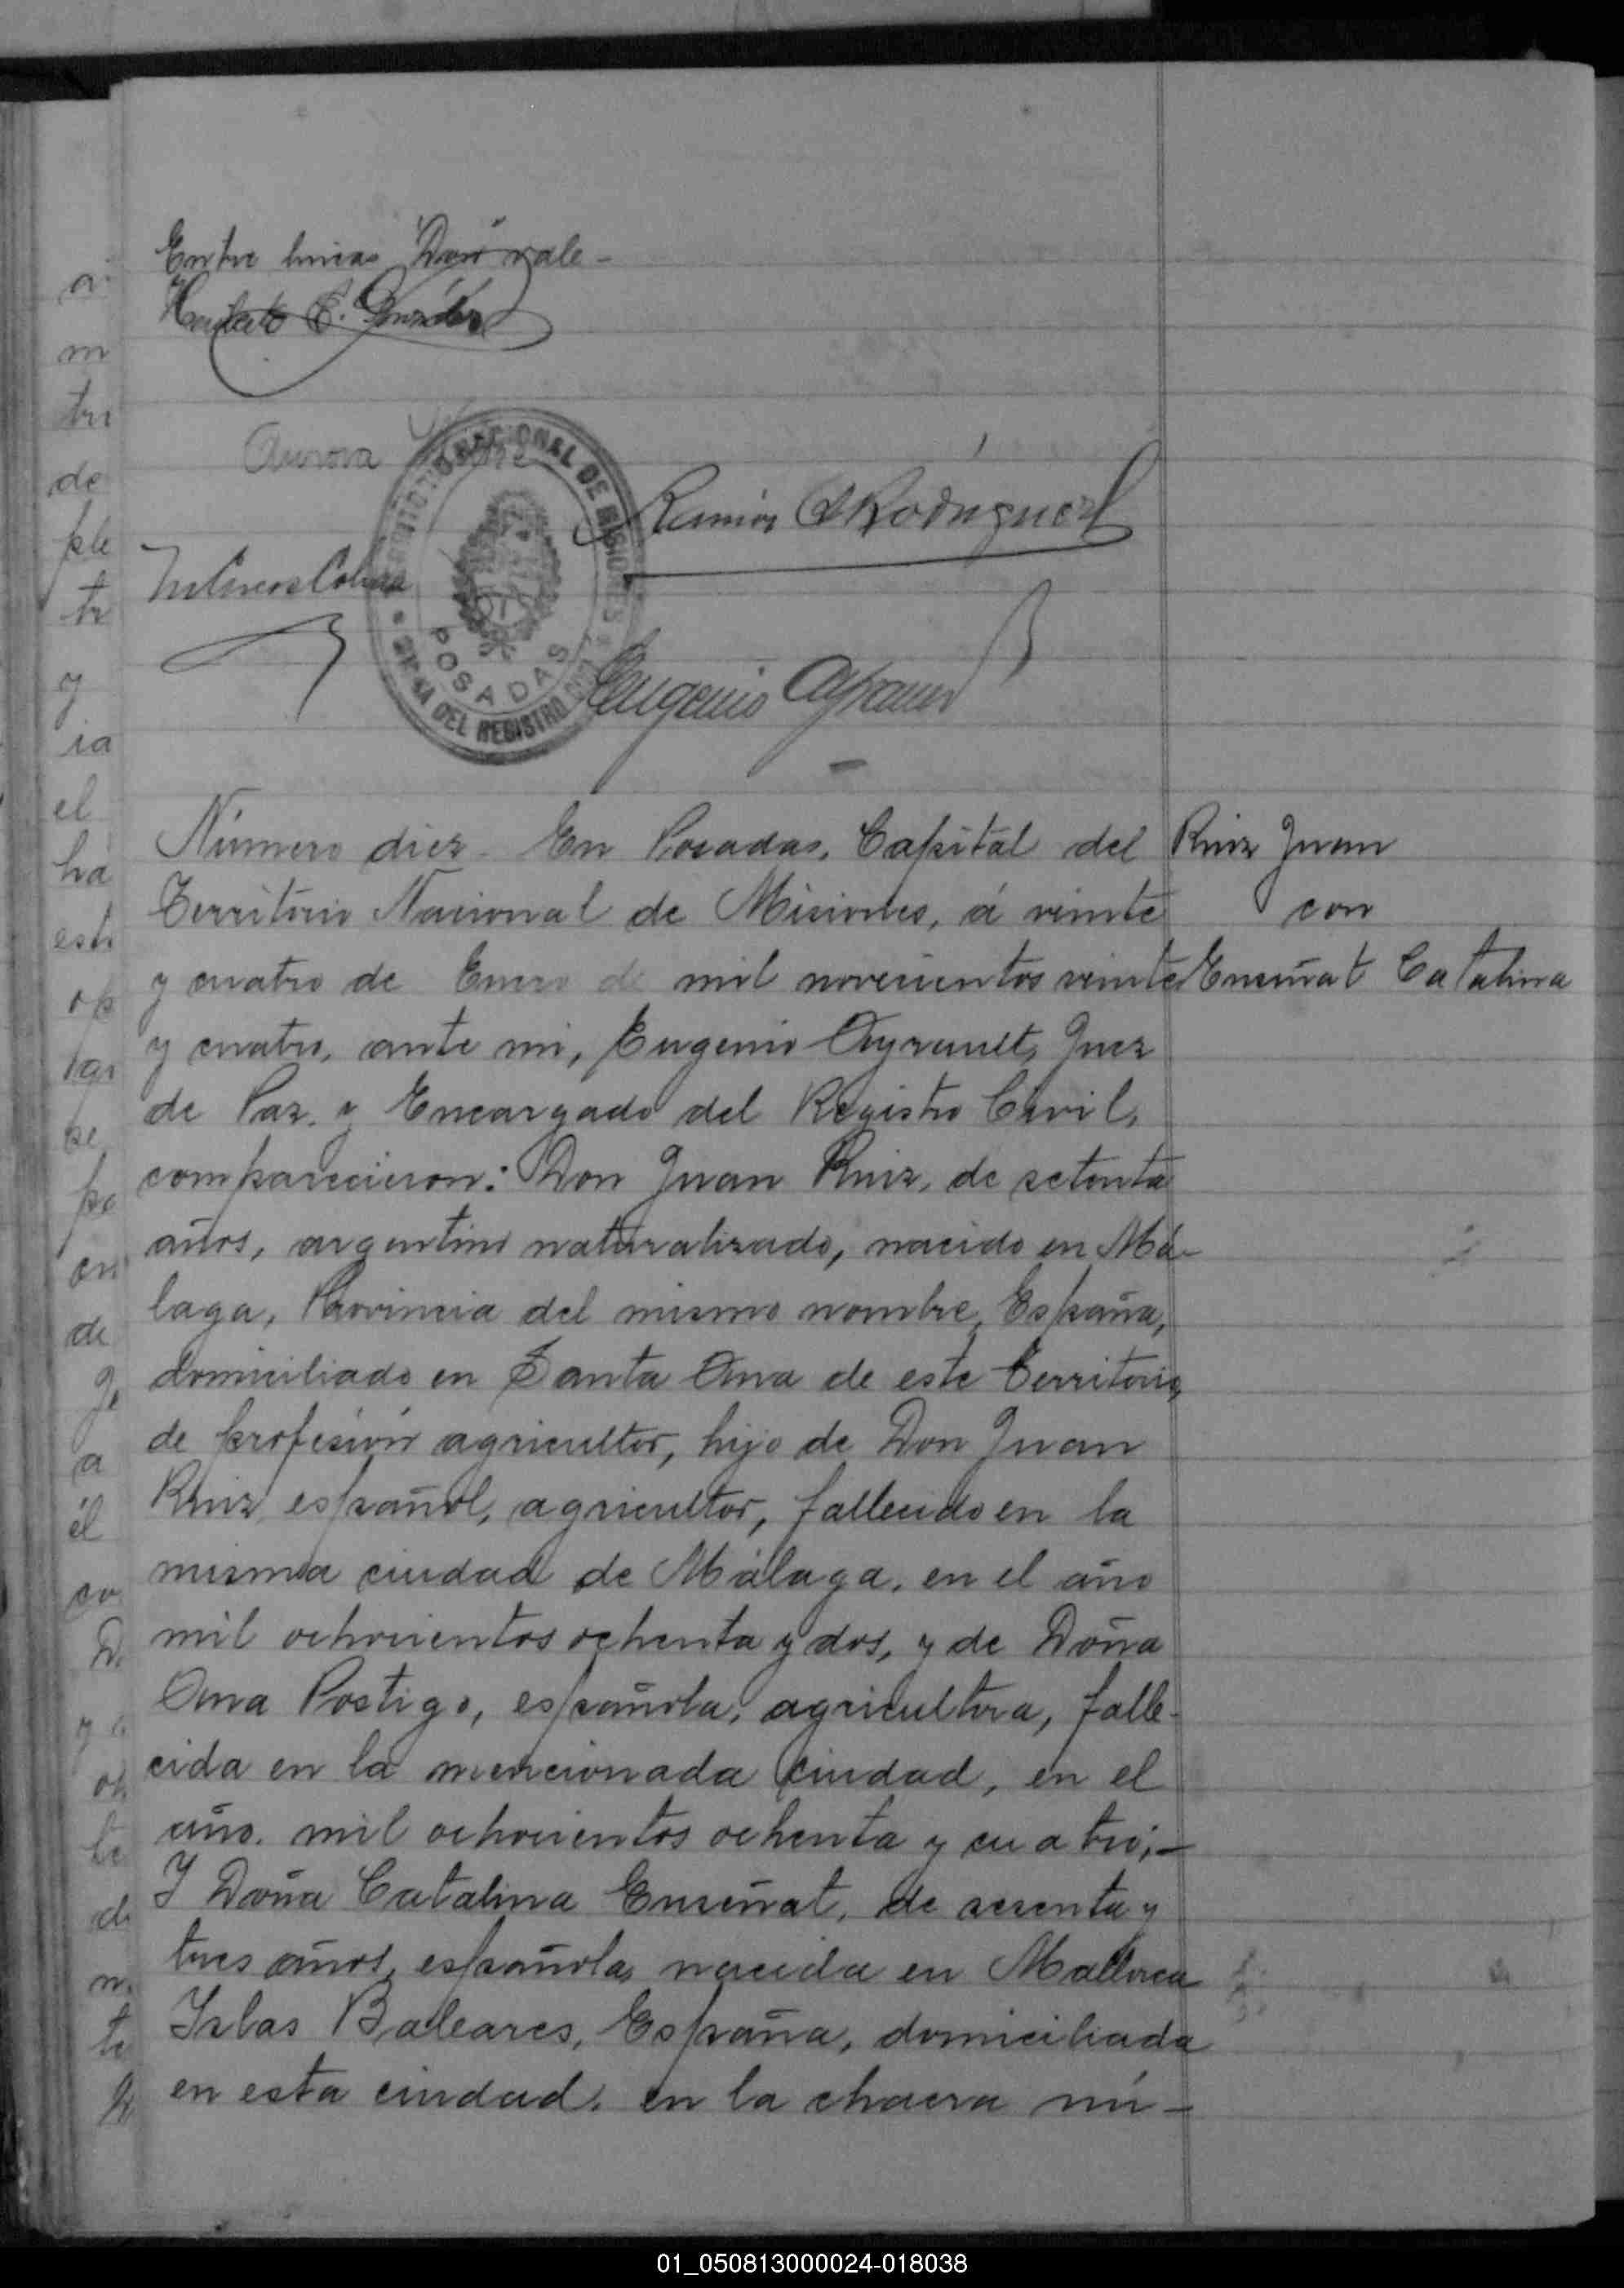 Entre lineas Don vale -
Aurora
TERRITORIO NACIONAL DE MISIONES
Ramón A Rodriguez
POSADAS
DEL REGISTRO
Eugenio Ayrault
Número diez En Posadas, Capital del
Territorio Nacional de Misiones, á veinte
y cuatro de Enero de mil novecientos veinte
y cuatro, ante mi, Eugenio Ayrault, Juez
de Paz y Encargado del Registro Civil,
comparecieron: Don Juan Ruiz, de setenta
años, argentino naturalizado, nacido en Má-
laga, Provincia del mismo nombre, España,
domiciliado en Santa Ana de este Territorio,
de profesión agricultor, hijo de Don Juan
Ruiz, español, agricultor, fallecido en la
misma ciudad de Málaga, en el año
mil ochocientos ochenta y dos, y de Doña
Ana Postigo, española, agricultora, falle-
cida en la mencionada ciudad, en el
año mil ochocientos ochenta y cuatro; -
Y Doña Catalina Enseñat, de sesenta y
tres años, española, nacida en Mallorca
Islas Baleares, España, domiciliada
en esta ciudad, en la chacra nú-
Ruiz Juan
con
Enseñat Catalina
01_050813000024-018038